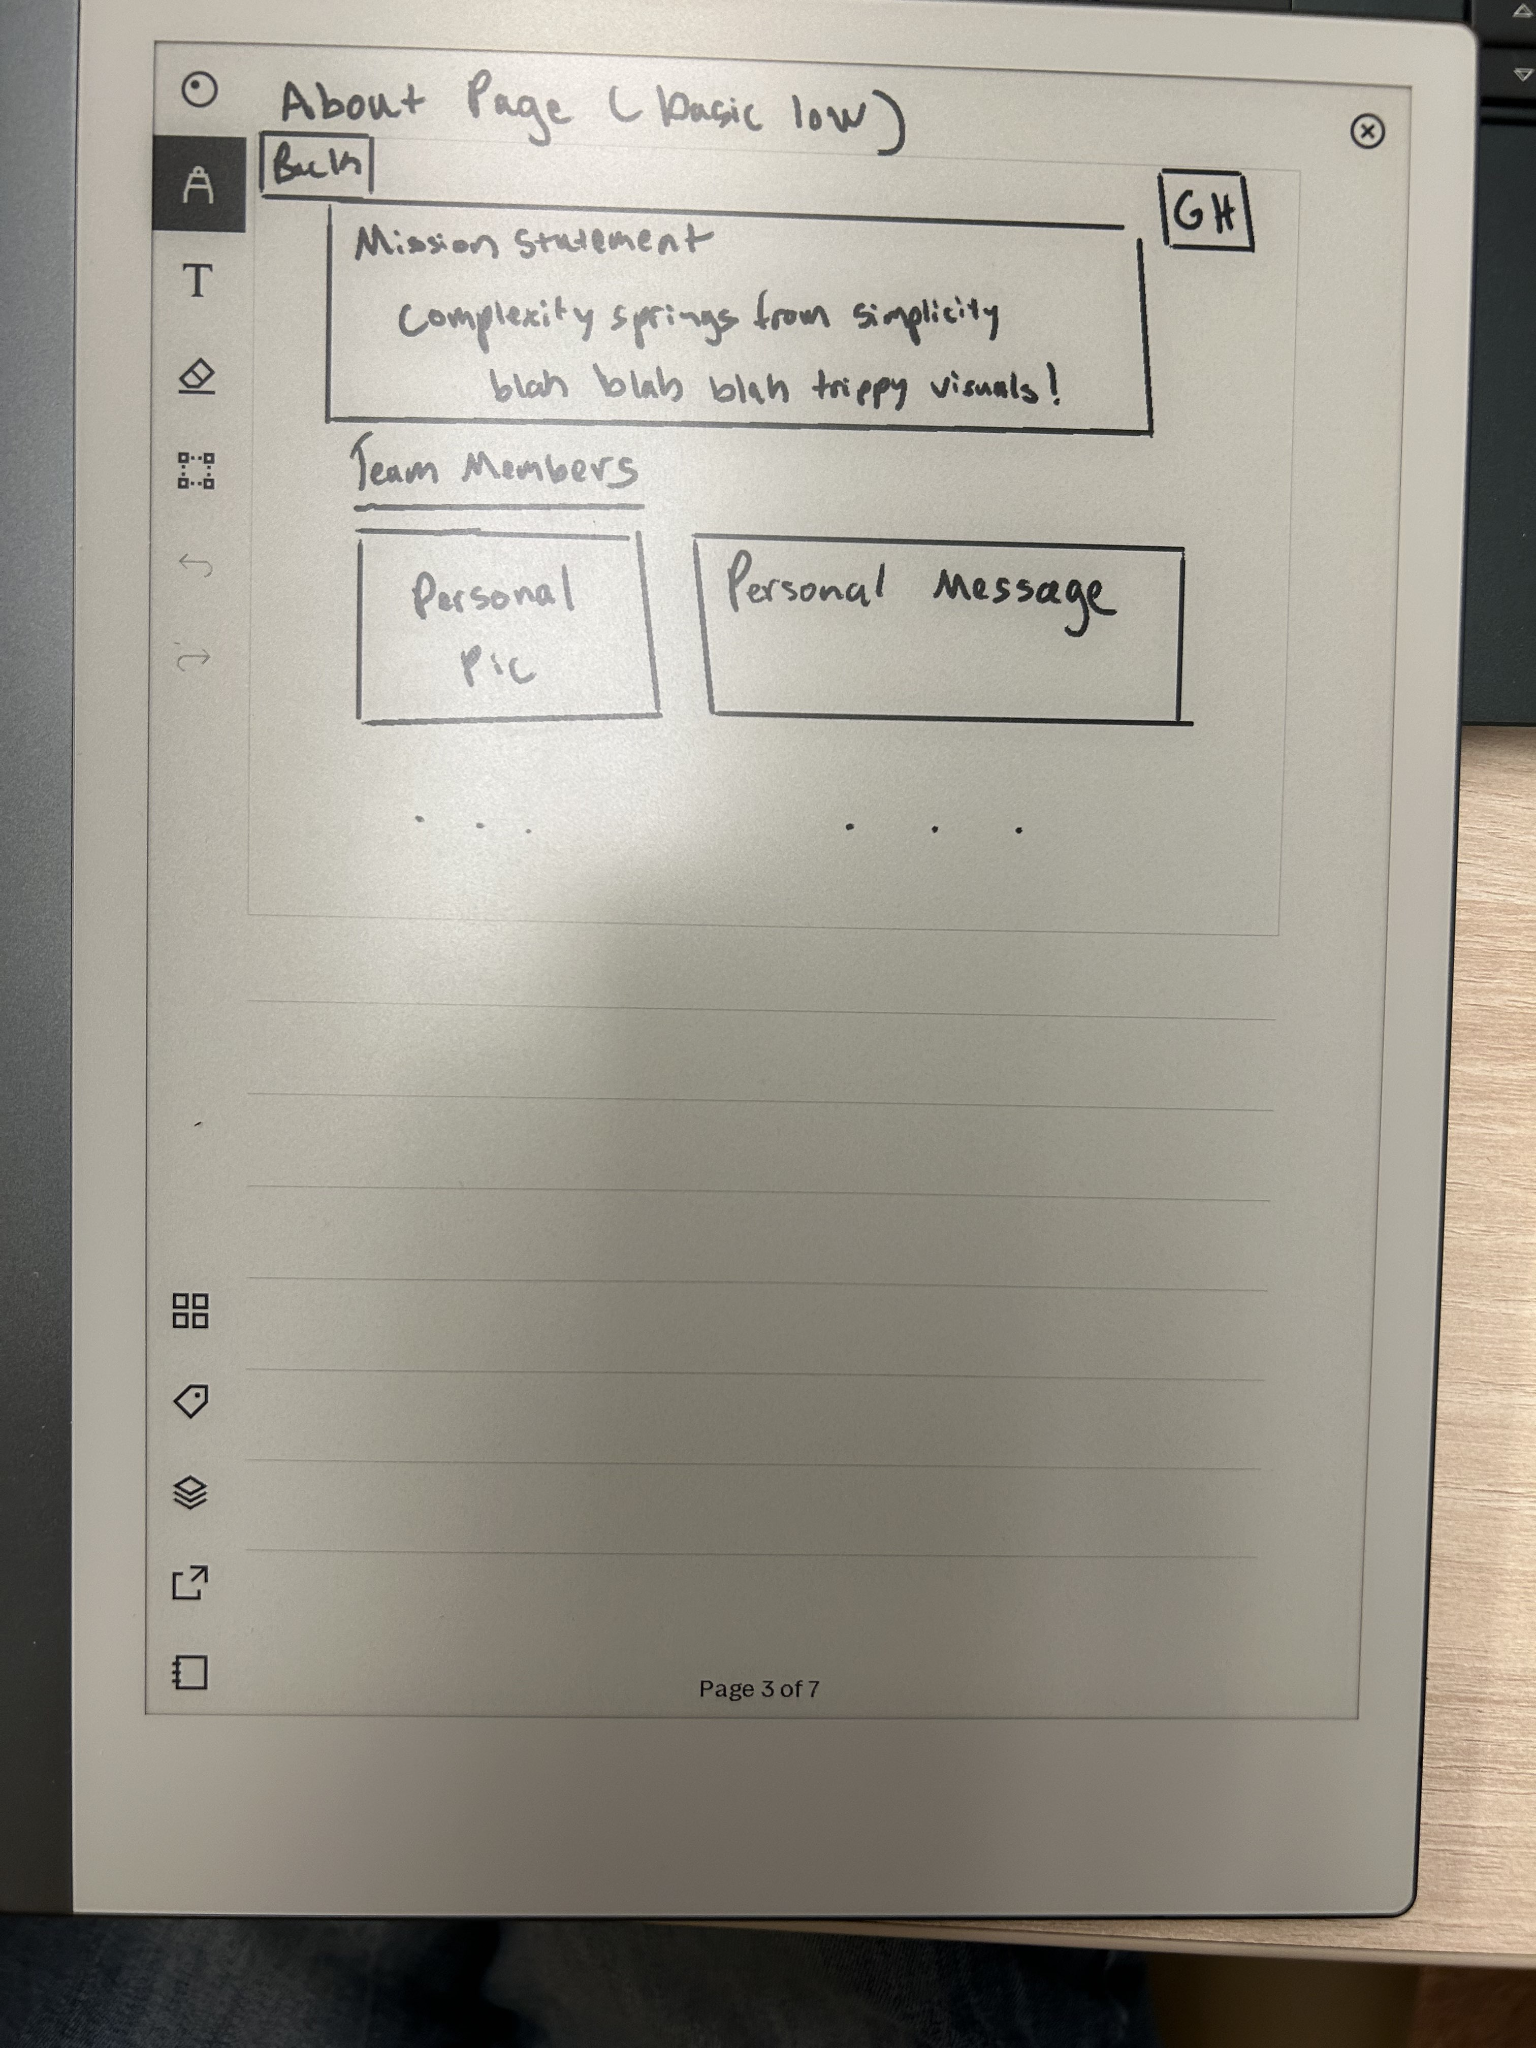 About Page (basic low)
Back
GH
Mission Statement
Complexity springs from simplicity
blah blah blah trippy visuals!
Team Members
Personal
Pic
Personal Message
. . .
. . .
T
Page 3 of 7